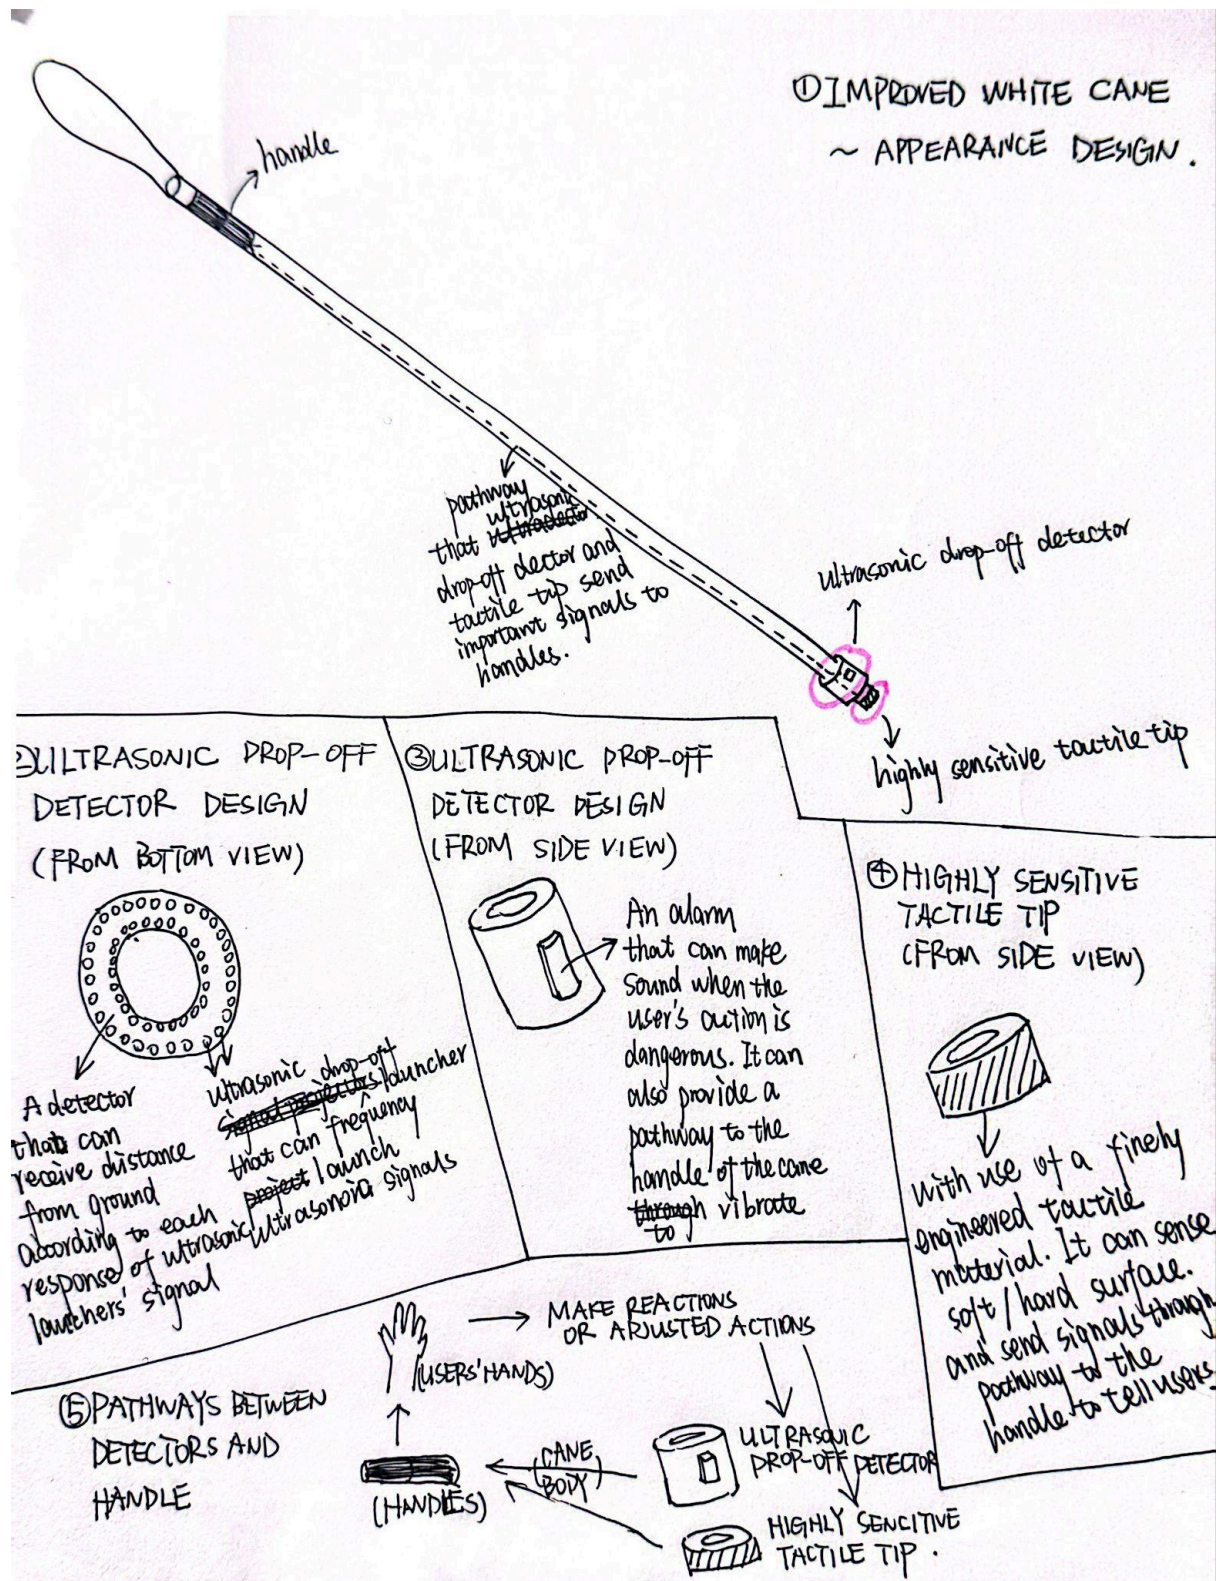 ①IMPROVED WHITE CANE
~ APPEARANCE DESIGN.
handle
pathway
ultrasonic
that
drop-off dector and
tactile tip send
important signals to
handles.
ultrasonic drop-off detector
highly sensitive tactile tip
②ULTRASONIC DROP-OFF
DETECTOR DESIGN
(FROM BOTTOM VIEW)
A detector
that can
receive distance
from ground
according to each
response of ultrasonic
launchers' signal
ultrasonic drop-off
signal projectors launcher
that can frequency
project launch
ultrasonic signals
③ULTRASONIC DROP-OFF
DETECTOR DESIGN
(FROM SIDE VIEW)
An alarm
that can make
sound when the
user's action is
dangerous. It can
also provide a
pathway to the
handle of the cane
through vibrate
to
④HIGHLY SENSITIVE
TACTILE TIP
(FROM SIDE VIEW)
with use of a finely
engineered tactile
material. It can sense
soft/hard surface.
and send signals through
pathway to the
handle to tell users.
⑤PATHWAYS BETWEEN
DETECTORS AND
HANDLE
(USERS' HANDS)
MAKE REACTIONS
OR ADJUSTED ACTIONS
(HANDLES)
(CANE
BODY)
ULTRASONIC
DROP-OFF DETECTOR
HIGHLY SENCITIVE
TACTILE TIP.